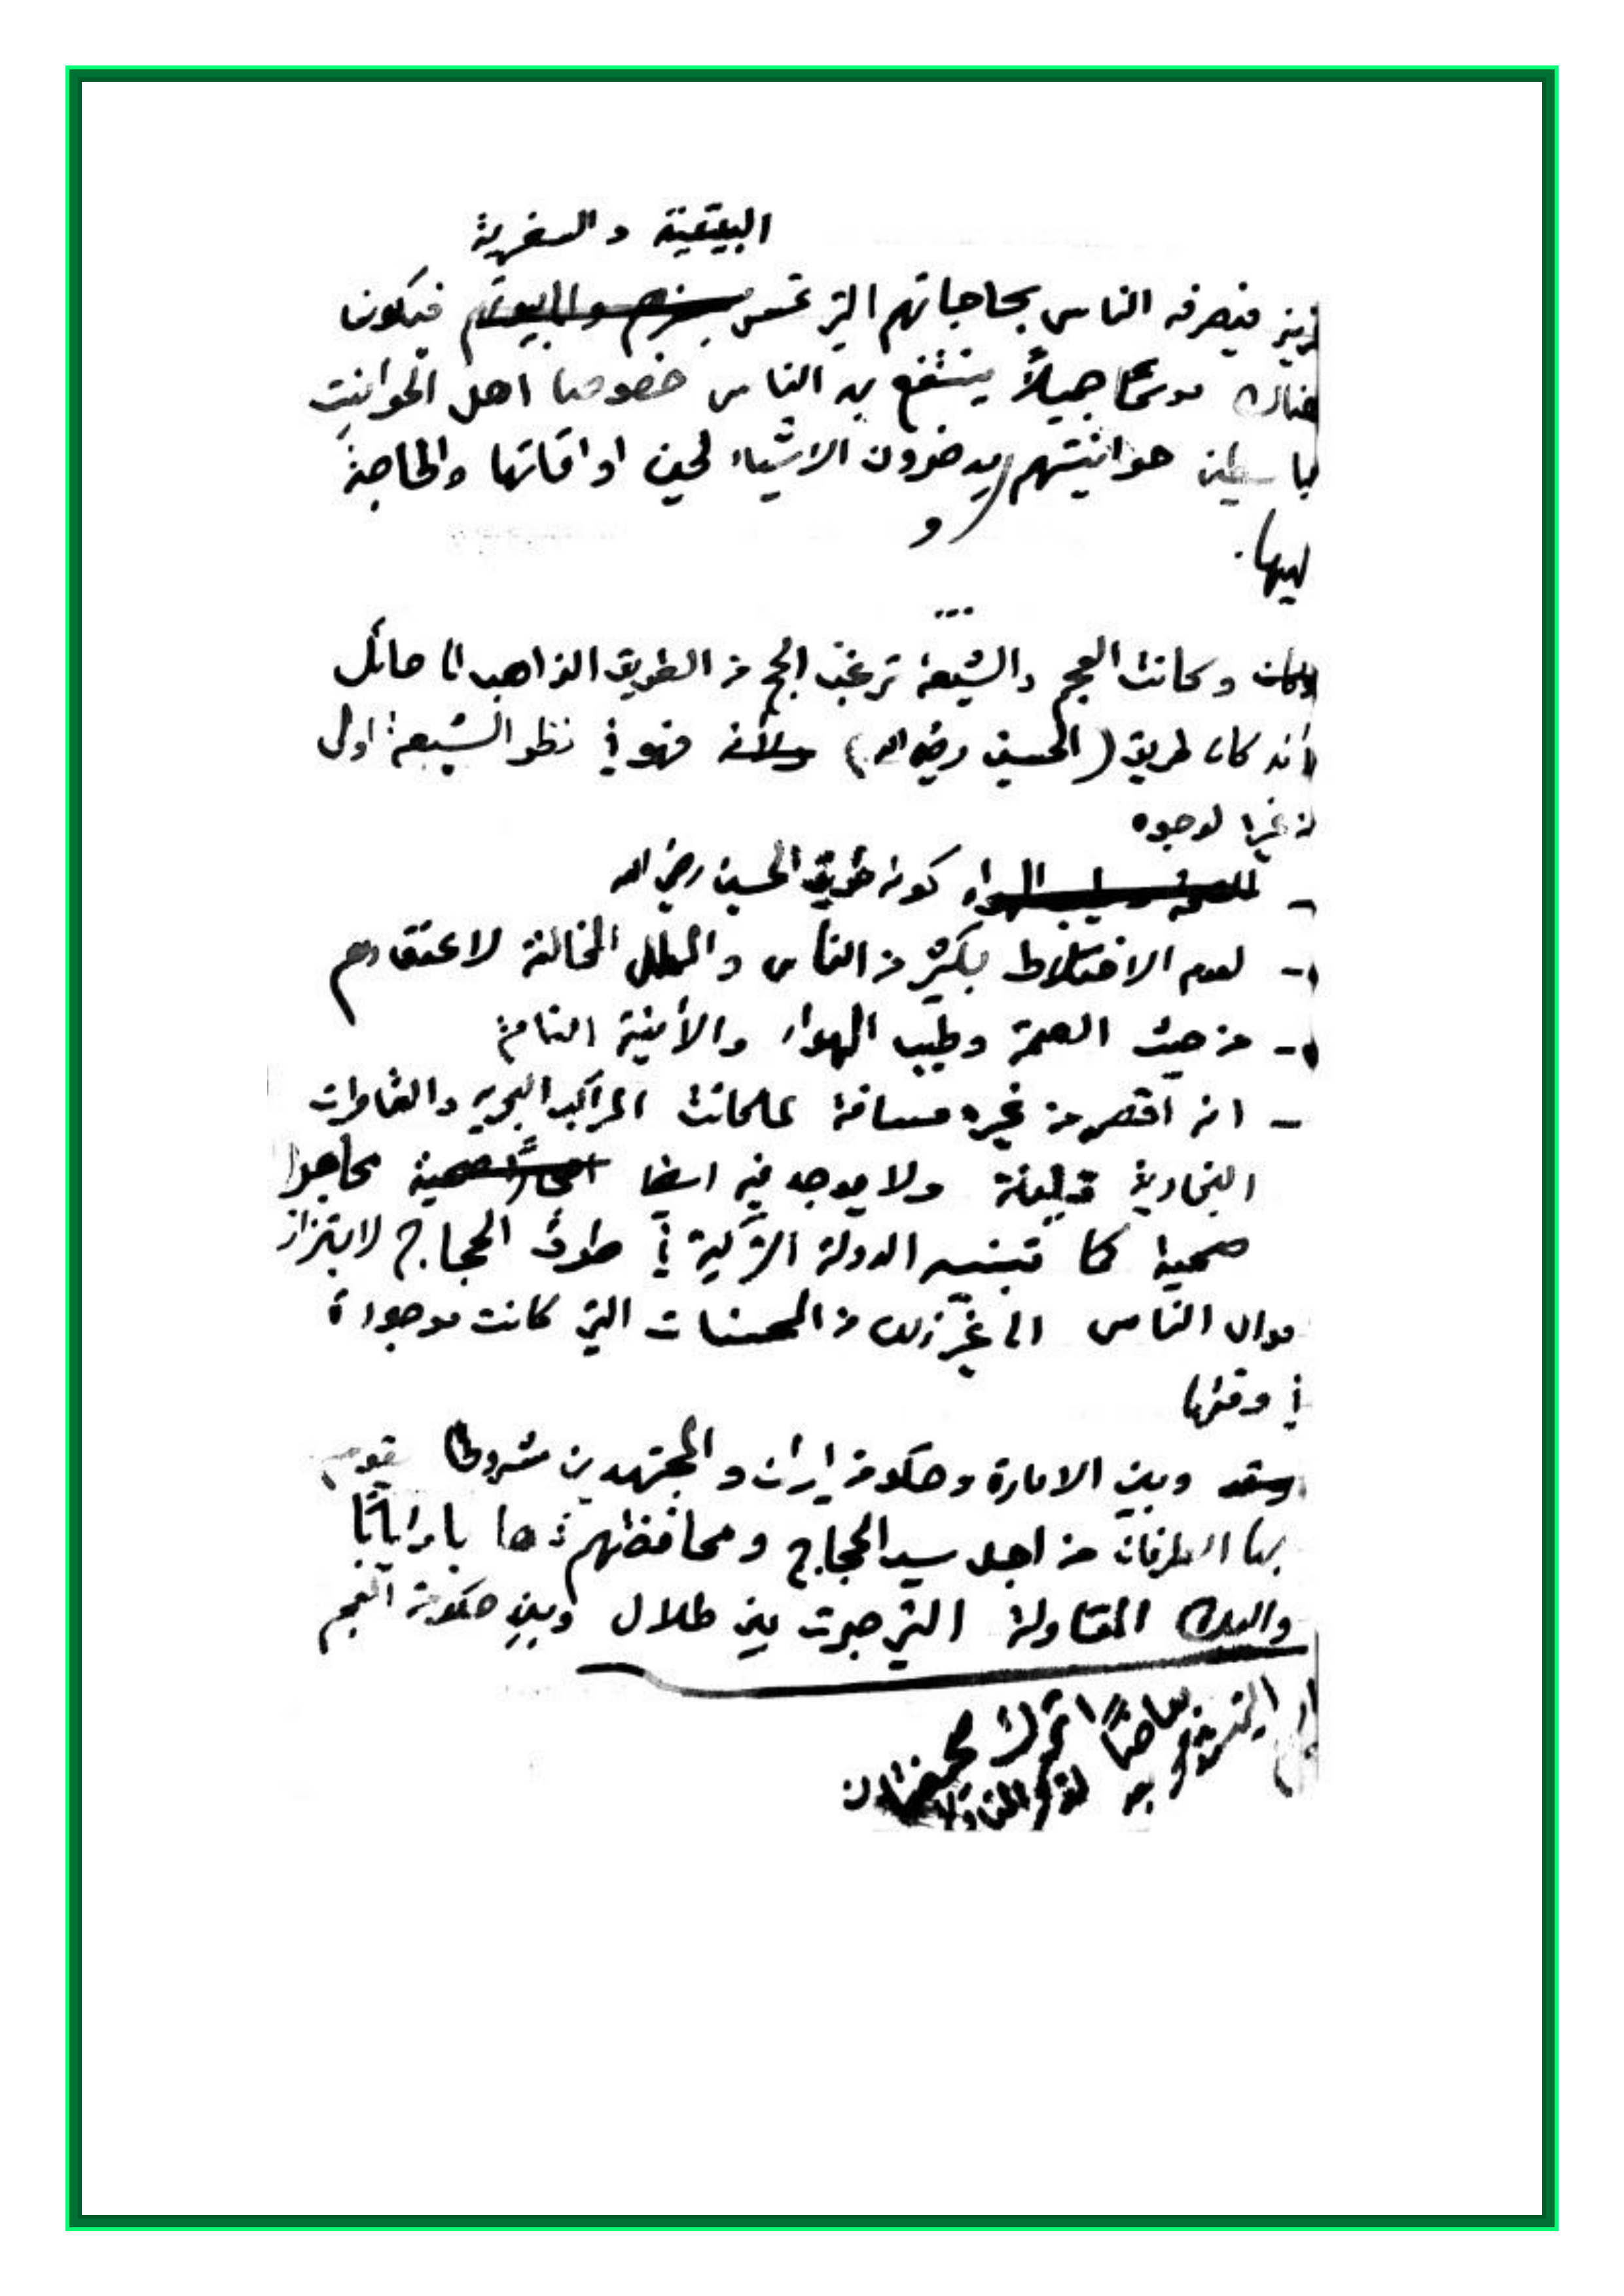 البيتية والسفرية
فيصرفه الناس بحاجاتهم التي تخص فيكون
هناك موسما جميلاً ينتفع به الناس خصوصا اهل الحوانيت
باسطين حوانيتهم ويدخرون الاشياء لحين اوقاتها والحاجة
ليها.
...
وكان وكانت العجم والشيعة ترغب الحج من الطريق الذاهب الى حائل
لأنه كان طريق (الحسين رضي الله) ولأنه فهو في نظر الشيعة اولى
من غيره لوجوه
- كونه طريق الحسين رضي الله
- لعدم الاختلاط بكثير من الناس والملل المخالفة لاعتقادهم
- من حيث الصحة وطيب الهواء والأمنية التامة
- انه اقصر من غيره مسافة لما كانت المراكب البحرية والقاطرات
البخارية قليلة ولا يوجد فيه ايضا محاجرا
صحية كما تبنيه الدولة التركية في طرق الحجاج لابتزاز
موال الناس الى غير ذلك من المحسنات التي كانت موجودة
في وقتها
وبين الامارة وحكومة ايران والمجتهدين شروطا يقوم
بها الطرفان من اجل سير الحجاج ومحافظتهم ذهابا وايابا
واليك المقاولة التي جرت بين طلال وبين حكومة العجم